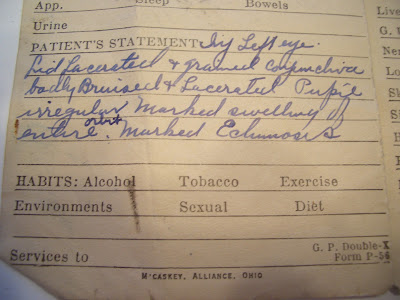 App. Sleep Bowels
Urine
PATIENT'S STATEMENT Inj Left eye.
Lid Lacerated & conjunctiva
badly Bruised & Lacerated Pupil
irregular Marked swelling of
entire orbit. Marked Echymosis
HABITS: Alcohol Tobacco Exercise
Environments Sexual Diet
Services to
G. P. Double-X
Form P-54
McCASKEY, ALLIANCE, OHIO
Live
G. U
Ne
Lo
Sk
S
H
B